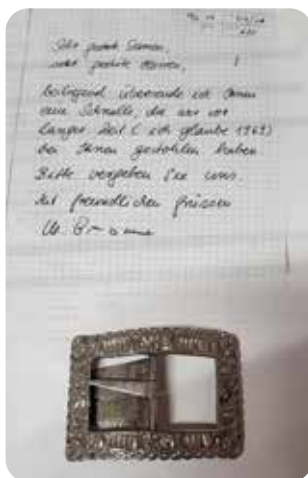 Sehr geehrte Damen,
sehr geehrte Herren,
beiliegend übersende ich Ihnen
eine Schnalle, die wir vor
langer Zeit (ich glaube 1969)
bei Ihnen gestohlen haben.
Bitte vergeben Sie uns.
Mit freundlichen Grüssen